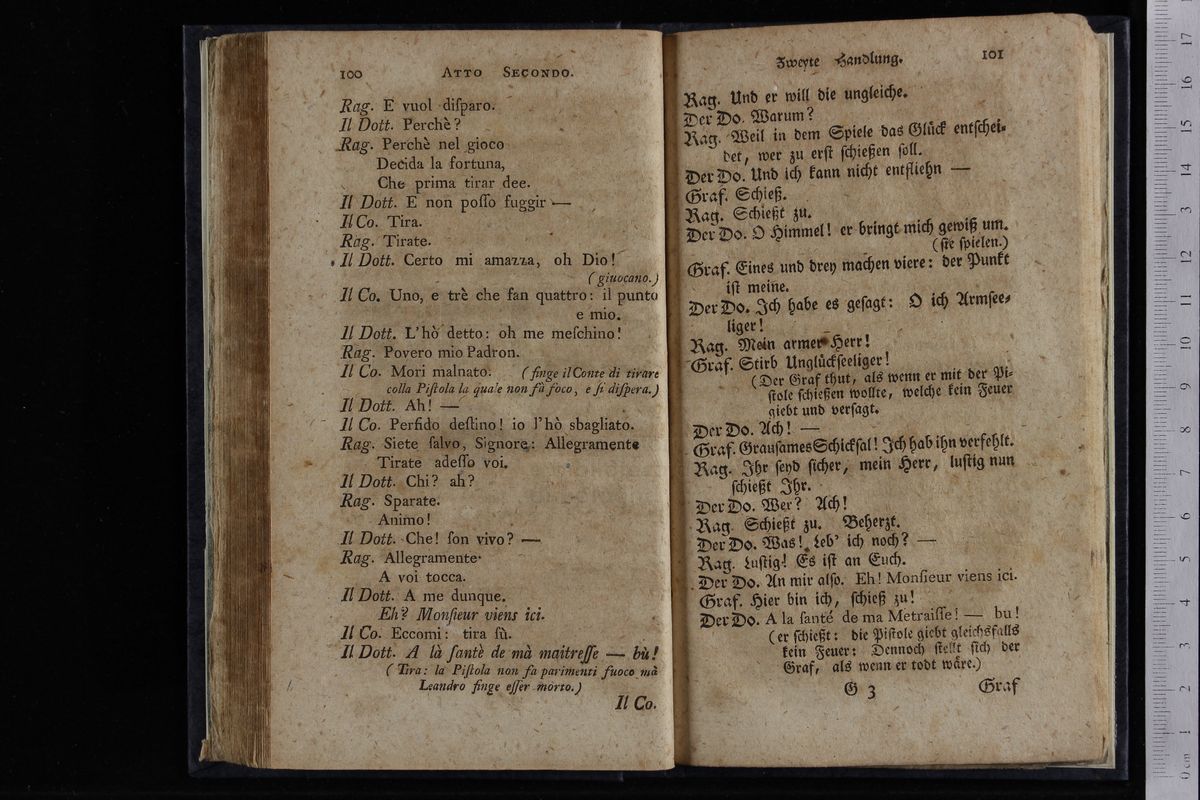 100 ATTO SECONDO.
Rag. E vuol diſparo.
Il Dott. Perchè?
Rag. Perchè nel gioco
Decida la fortuna,
Che prima tirar dee.
Il Dott. E non poſſo fuggir —
Il Co. Tira.
Rag. Tirate.
Il Dott. Certo mi amazza, oh Dio!
(giuocano.)
Il Co. Uno, e trè che fan quattro: il punto
e mio.
Il Dott. L'hò detto: oh me meſchino!
Rag. Povero mio Padron.
Il Co. Mori malnato. (finge il Conte di tirare
colla Piſtola la quale non fà foco, e ſi diſpera.)
Il Dott. Ah! —
Il Co. Perfido deſtino! io l'hò sbagliato.
Rag. Siete ſalvo, Signore: Allegramente
Tirate adeſſo voi.
Il Dott. Chi? ah?
Rag. Sparate.
Animo!
Il Dott. Che! ſon vivo? —
Rag. Allegramente.
A voi tocca.
Il Dott. A me dunque.
Eh? Monſieur viens ici.
Il Co. Eccomi: tira ſù.
Il Dott. A là ſantè de mà maitreſſe — bù!
(Tira: la Piſtola non fa parimenti fuoco mà
Leandro finge eſſer morto.)
Il Co.
Zweyte Handlung. 101
Rag. Und er will die ungleiche.
Der Do. Warum?
Rag. Weil in dem Spiele das Glück entſchei⸗
det, wer zu erſt ſchießen ſoll.
Der Do. Und ich kann nicht entfliehn —
Graf. Schieß.
Rag. Schießt zu.
Der Do. O Himmel! er bringt mich gewiß um.
(ſie ſpielen.)
Graf. Eines und drey machen viere: der Punkt
iſt meine.
Der Do. Ich habe es geſagt: O ich Armſee⸗
liger!
Rag. Mein armer Herr!
Graf. Stirb Unglückſeeliger!
(Der Graf thut, als wenn er mit der Pi⸗
ſtole ſchießen wollte, welche kein Feuer
giebt und verſagt.
Der Do. Ach! —
Graf. Grauſames Schickſal! Ich hab ihn verfehlt.
Rag. Ihr ſeyd ſicher, mein Herr, luſtig nun
ſchießt Ihr.
Der Do. Wer? Ach!
Rag. Schießt zu. Beherzt.
Der Do. Was! Leb' ich noch? —
Rag. Luſtig! Es iſt an Euch.
Der Do. An mir alſo. Eh! Monſieur viens ici.
Graf. Hier bin ich, ſchieß zu!
Der Do. A la ſanté de ma Metraiſſe! — bu!
(er ſchießt: die Piſtole giebt gleichsfalls
kein Feuer: Dennoch ſtellt ſich der
Graf, als wenn er todt wäre.)
G 3 Graf